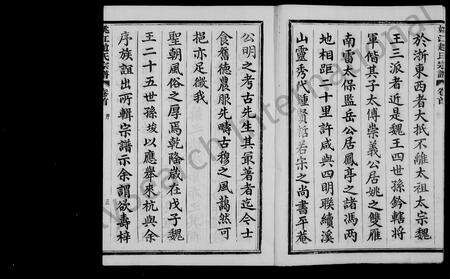 於浙東西者大抵不離太祖太宗魏
王三派者近是魏王四世孫鈐轄將
軍偕其子太傅崇義公居姚之雙雁
南雷太保監岳公居鳳亭之諸馮兩
地相距二十里許咸與四明聯續溪
山靈秀代鍾賢哲若宗之尚書平菴
公明之考古先生其最著者迄今士
食舊德農服先疇古穆之風藹然可
挹亦足徵我
聖朝風俗之厚焉乾隆歲在戊子魏
王二十五世孫埈以應舉來杭與余
序族誼出所輯宗譜示余謂欲壽梓
姚江趙氏宗譜 卷首